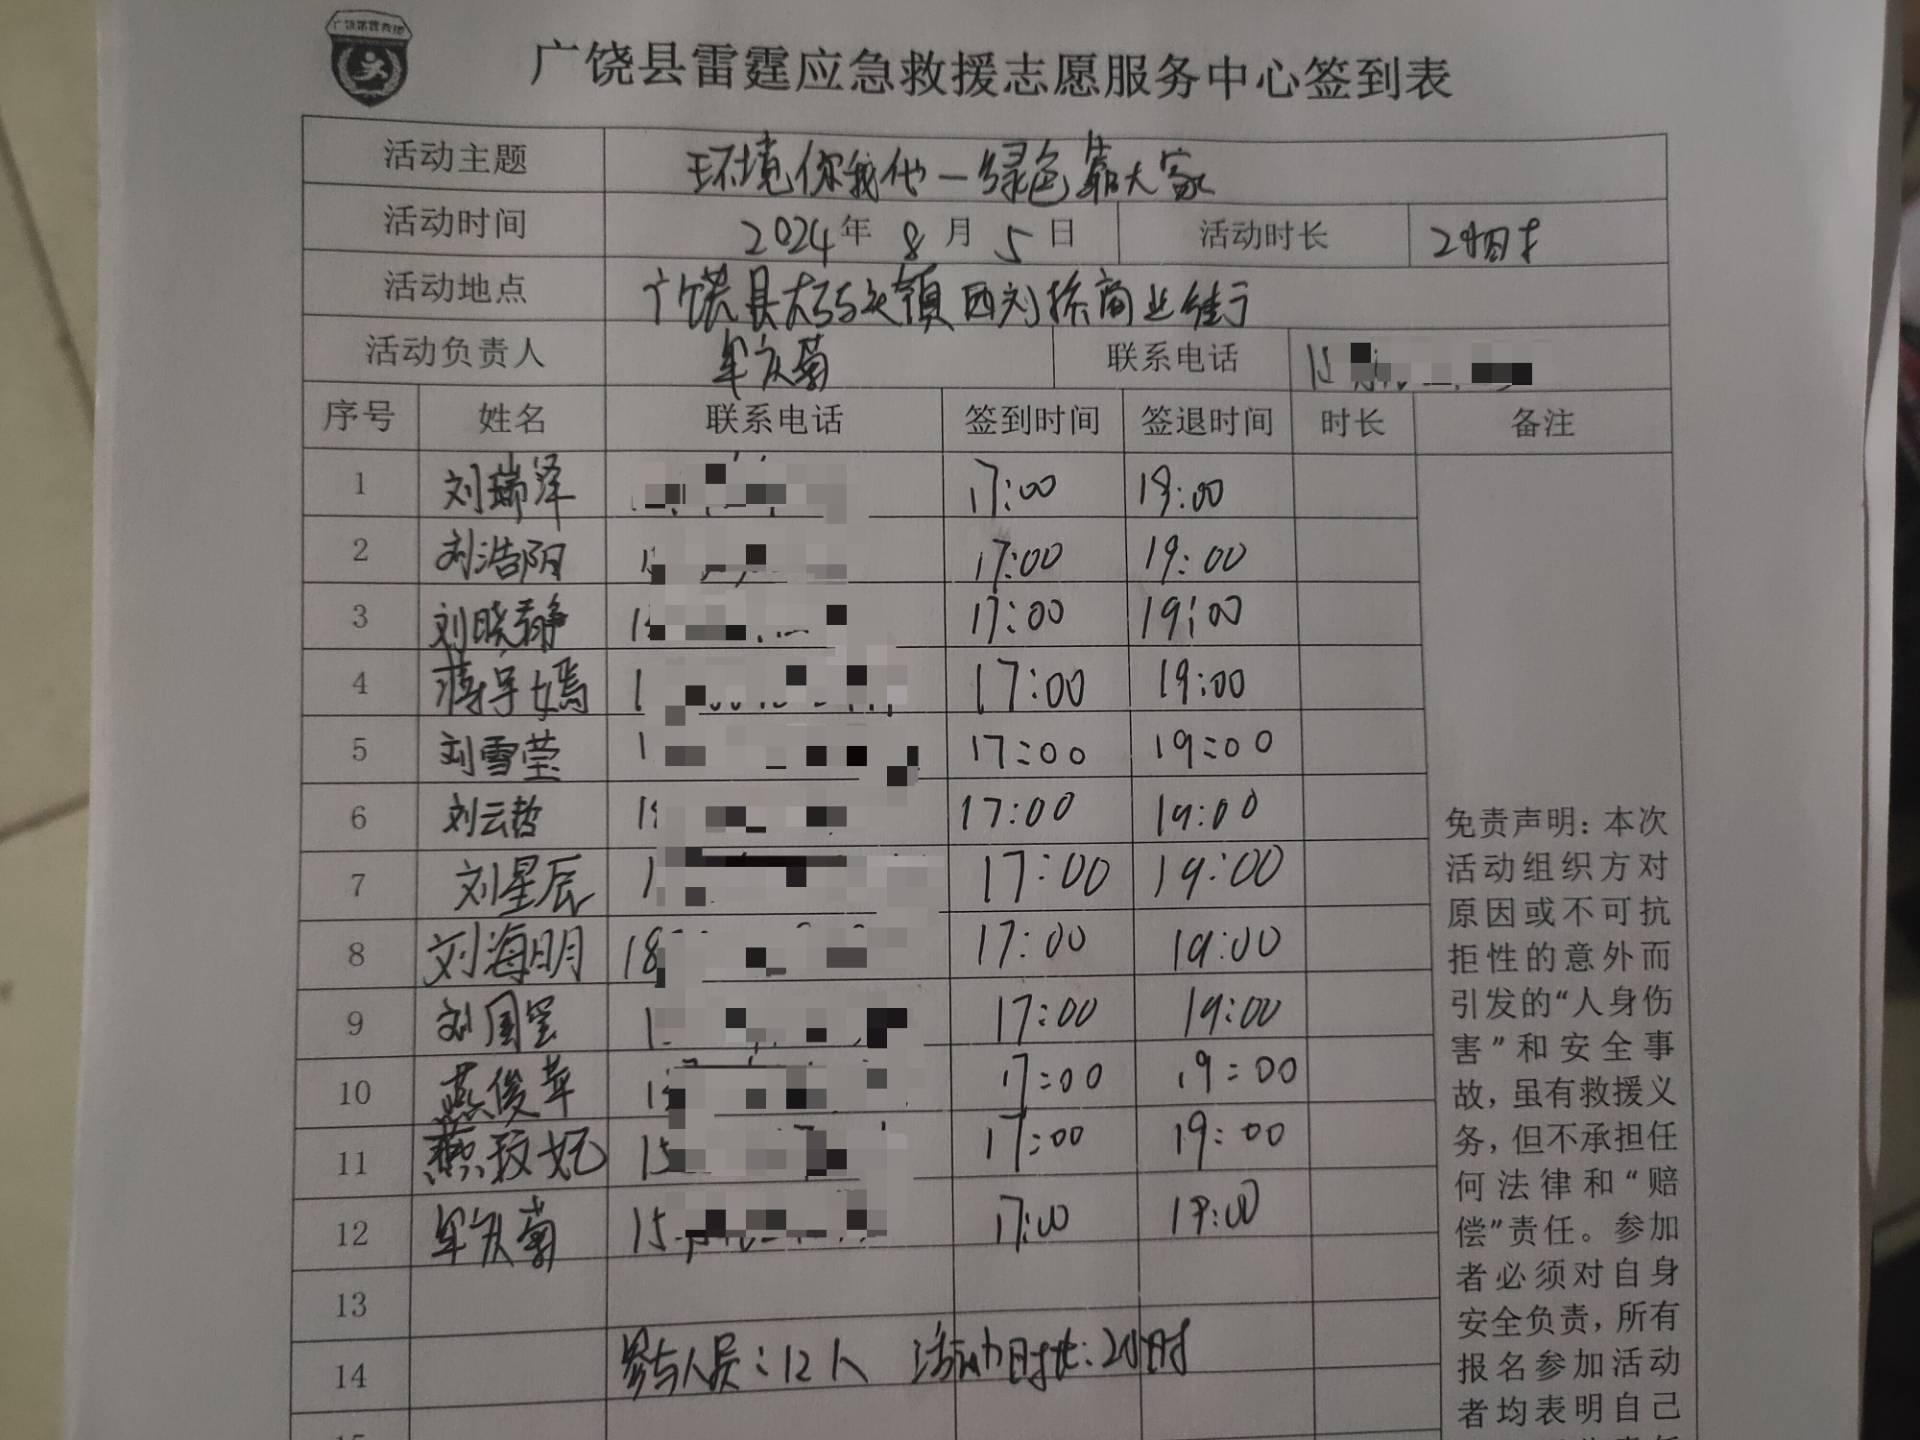 广饶县雷霆应急救援志愿服务中心签到表
活动主题 环境你我他一绿色靠大家
活动时间 2024年 8月 5日 活动时长 2小时
活动地点 广饶县大码头镇西刘桥商业街
活动负责人 牟庆菊 联系电话 15
序号 姓名 联系电话 签到时间 签退时间 时长 备注
1 刘瑞泽 17:00 19:00
2 刘浩阳 1 17:00 19:00
3 刘晓静 1 17:00 19:00
4 蒋宇嫣 1 17:00 19:00
5 刘雪莹 1 17:00 19:00
6 刘云哲 1 17:00 19:00
7 刘星辰 1 17:00 19:00
8 刘海明 18 17:00 19:00
9 刘国玺 1 17:00 19:00
10 燕俊苹 1 17:00 19:00
11 燕玟妃 15 17:00 19:00
12 牟庆菊 15 17:00 19:00
13
14 参与人员:12人 活动时长:2小时
免责声明：本次
活动组织方对
原因或不可抗
拒性的意外而
引发的“人身伤
害”和安全事
故，虽有救援义
务，但不承担任
何法律和“赔
偿”责任。参加
者必须对自身
安全负责，所有
报名参加活动
者均表明自己